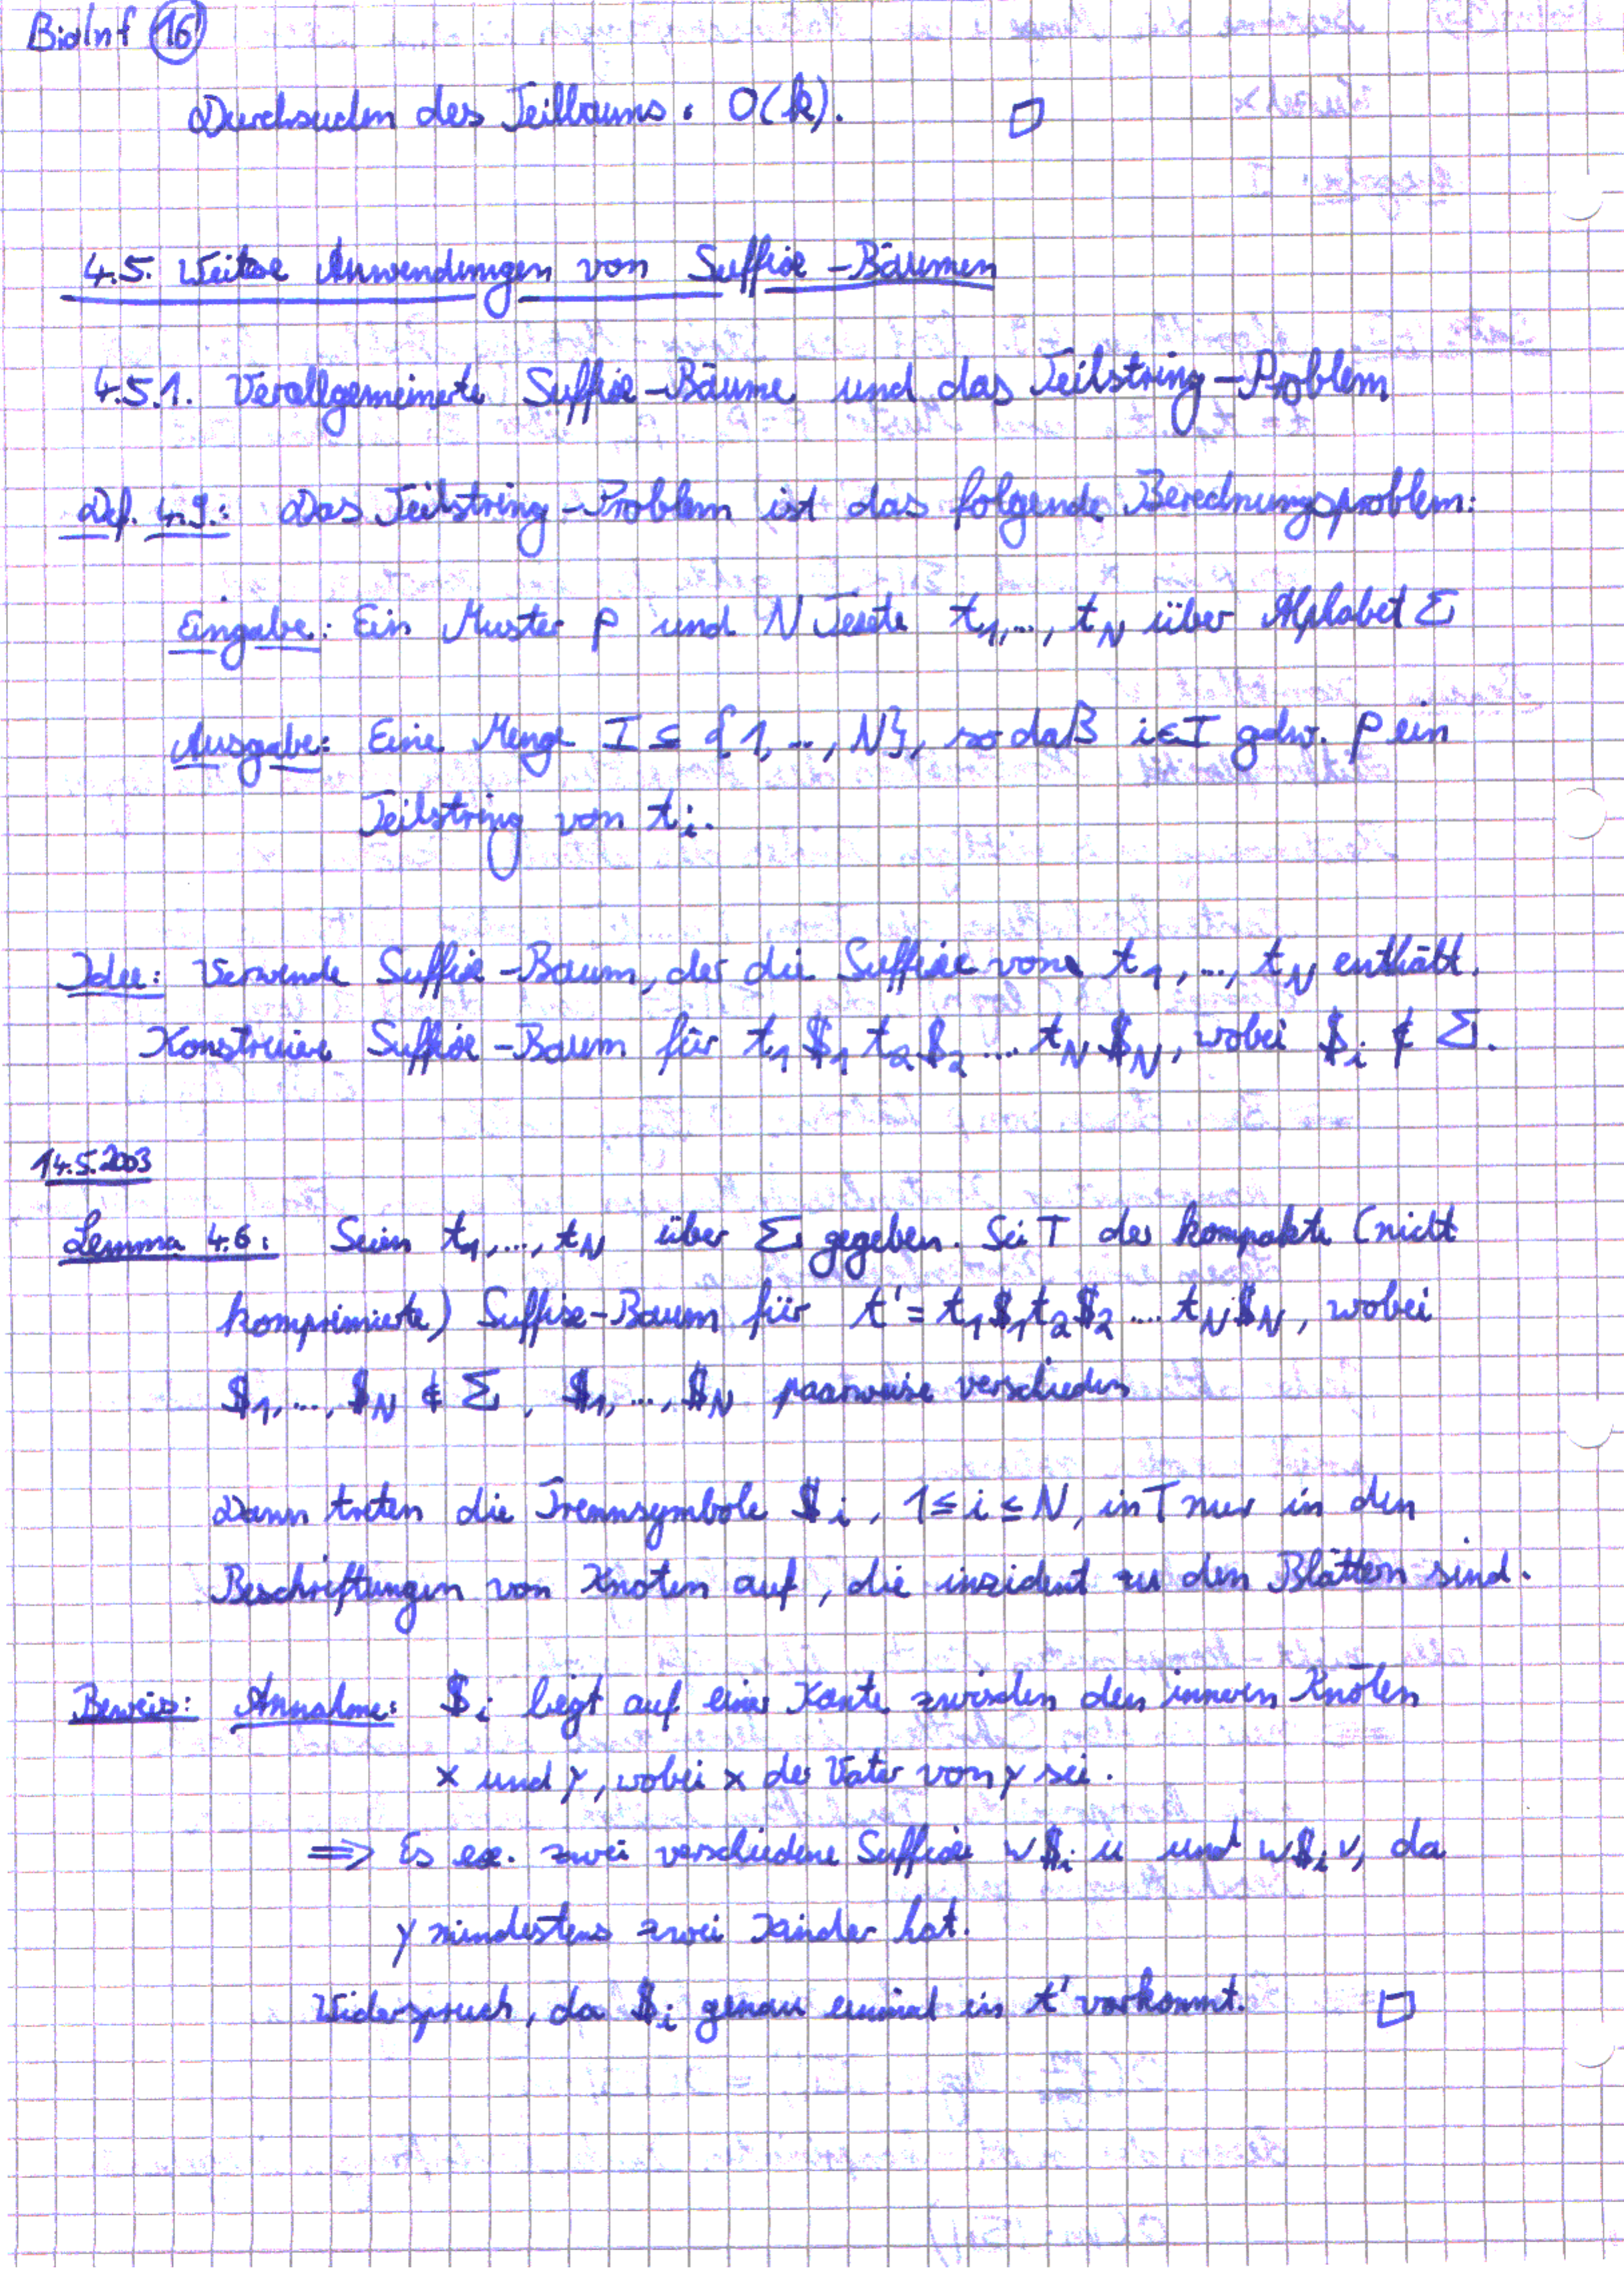 BioInf 16
Durchsuchen des Teilbaums: O(k). □
4.5. Weitere Anwendungen von Suffix-Bäumen
4.5.1. Verallgemeinerte Suffix-Bäume und das Teilstring-Problem
Def. 4.9.: Das Teilstring-Problem ist das folgende Berechnungsproblem:
Eingabe: Ein Muster p und N Texte t₁,..., t_N über Alphabet Σ
Ausgabe: Eine Menge I ⊆ {1,..., N}, so daß i∈I gdw. p ein
Teilstring von t_i.
Idee: Verwende Suffix-Baum, der die Suffixe von t₁,..., t_N enthält.
Konstruiere Suffix-Baum für t₁$₁t₂$₂....t_N$_N, wobei $_i ∉ Σ.
14.5.2003
Lemma 4.6: Seien t₁,..., t_N über Σ gegeben. Sei T der kompakte (nicht
komprimierte) Suffix-Baum für t' = t₁$₁t₂$₂....t_N$_N, wobei
$₁,..., $_N ∉ Σ, $₁,..., $_N paarweise verschieden
Dann treten die Trennsymbole $_i, 1≤i≤N, in T nur in den
Beschriftungen von Knoten auf, die inzident zu den Blättern sind.
Beweis: Annahme: $_i liegt auf einer Kante zwischen den inneren Knoten
x und y, wobei x der Vater von y sei.
⇒ Es ex. zwei verschiedene Suffixe w$_i u und w$_i v, da
y mindestens zwei Kinder hat.
Widerspruch, da $_i genau einmal in t' vorkommt. □